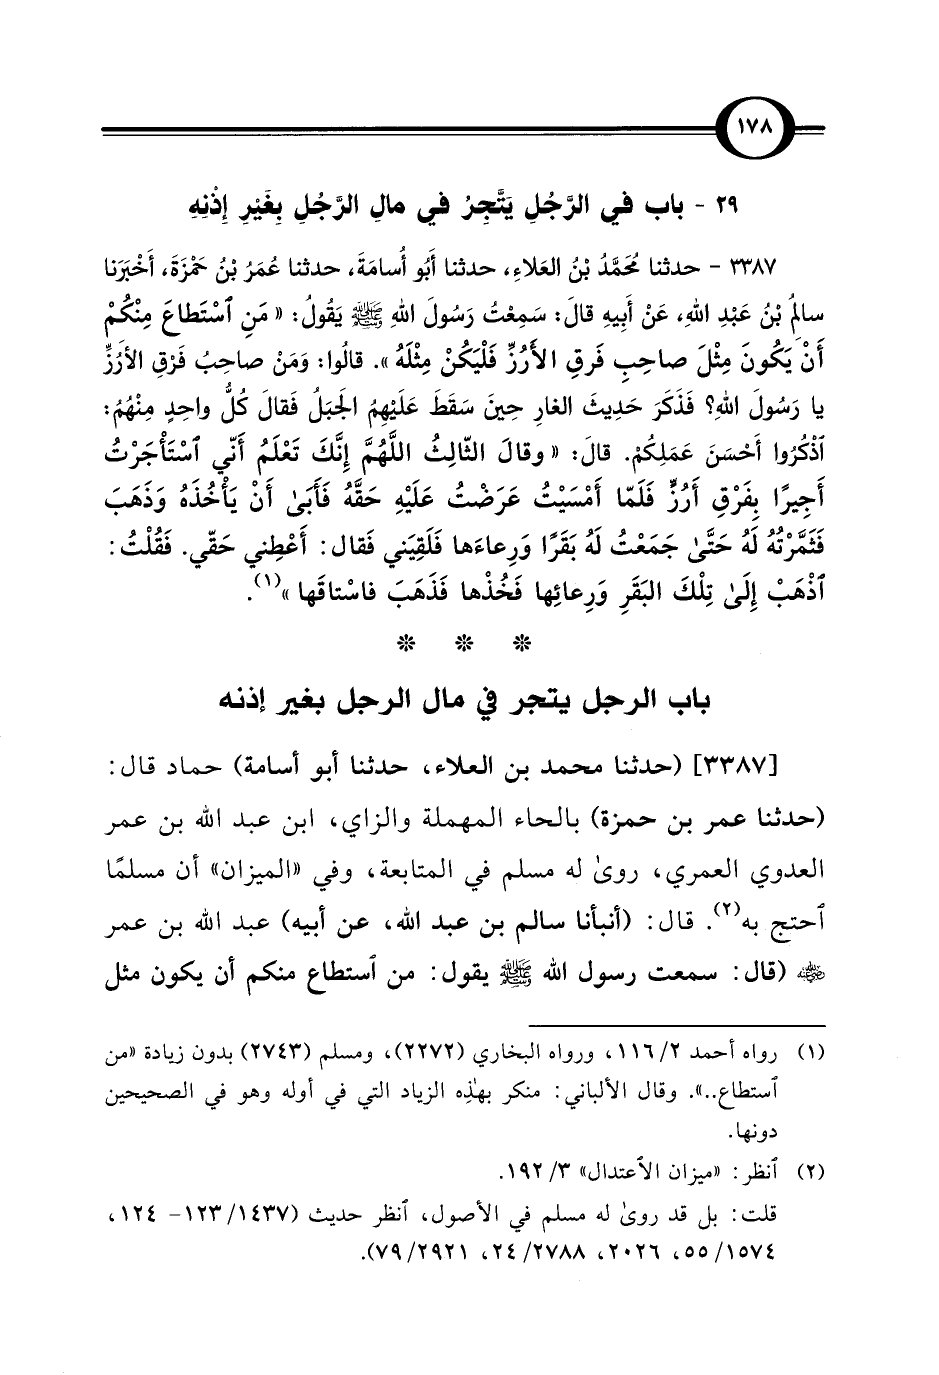 ١٧٨
٢٩ - باب في الرَّجُلِ يَتَّجِرُ في مالِ الرَّجُلِ بِغَيْرِ إِذْنِهِ
٣٣٨٧ - حدثنا مُحَمَّدُ بْنُ العَلاءِ، حدثنا أَبُو أُسامَةَ، حدثنا عُمَرُ بْنُ حَمْزَةَ، أَخْبَرَنا
سالِمُ بْنُ عَبْدِ اللهِ، عَنْ أَبِيهِ قالَ: سَمِعْتُ رَسُولَ اللهِ ﷺ يَقُولُ: « مَنِ ٱسْتَطاعَ مِنْكُمْ
أَنْ يَكُونَ مِثْلَ صاحِبِ فَرقِ الأَرُزِّ فَلْيَكُنْ مِثْلَهُ ». قالُوا: وَمَنْ صاحِبُ فَرْقِ الأَرُزِّ
يا رَسُولَ اللهِ؟ فَذَكَرَ حَدِيثَ الغارِ حِينَ سَقَطَ عَلَيْهِمُ الجَبَلُ فَقالَ كُلُّ واحِدٍ مِنْهُمُ:
ٱذْكُرُوا أَحْسَنَ عَمَلِكُمْ. قالَ: « وقالَ الثّالِثُ اللَّهُمَّ إِنَّكَ تَعْلَمُ أَنّي ٱسْتَأْجَرْتُ
أَجِيرًا بِفَرْقِ أَرُزٍّ فَلَمّا أَمْسَيْتُ عَرَضْتُ عَلَيْهِ حَقَّهُ فَأَبَىٰ أَنْ يَأْخُذَهُ وَذَهَبَ
فَثَمَّرْتُهُ لَهُ حَتَّىٰ جَمَعْتُ لَهُ بَقَرًا وَرِعاءَها فَلَقِيَني فَقال: أَعْطِني حَقّي. فَقُلْتُ:
ٱذْهَبْ إِلَىٰ تِلْكَ البَقَرِ وَرِعائِها فَخُذْها فَذَهَبَ فاسْتاقَها »(١).
❊ ❊ ❊
باب الرجل يتجر في مال الرجل بغير إذنه
[٣٣٨٧] (حدثنا محمد بن العلاء، حدثنا أبو أسامة) حماد قال:
(حدثنا عمر بن حمزة) بالحاء المهملة والزاي، ابن عبد الله بن عمر
العدوي العمري، روىٰ له مسلم في المتابعة، وفي «الميزان» أن مسلمًا
ٱحتج به(٢). قال: (أنبأنا سالم بن عبد الله، عن أبيه) عبد الله بن عمر
رضي الله عنهما (قال: سمعت رسول الله ﷺ يقول: من ٱستطاع منكم أن يكون مثل
(١) رواه أحمد ٢/ ١١٦، ورواه البخاري (٢٢٧٢)، ومسلم (٢٧٤٣) بدون زيادة «من
ٱستطاع..». وقال الألباني: منكر بهٰذِه الزياد التي في أوله وهو في الصحيحين
دونها.
(٢) ٱنظر: «ميزان الاعتدال» ٣/ ١٩٢.
قلت: بل قد روىٰ له مسلم في الأصول، ٱنظر حديث (١٤٣٧/ ١٢٣- ١٢٤،
١٥٧٤/ ٥٥، ٢٠٢٦، ٢٧٨٨/ ٢٤، ٢٩٢١/ ٧٩).